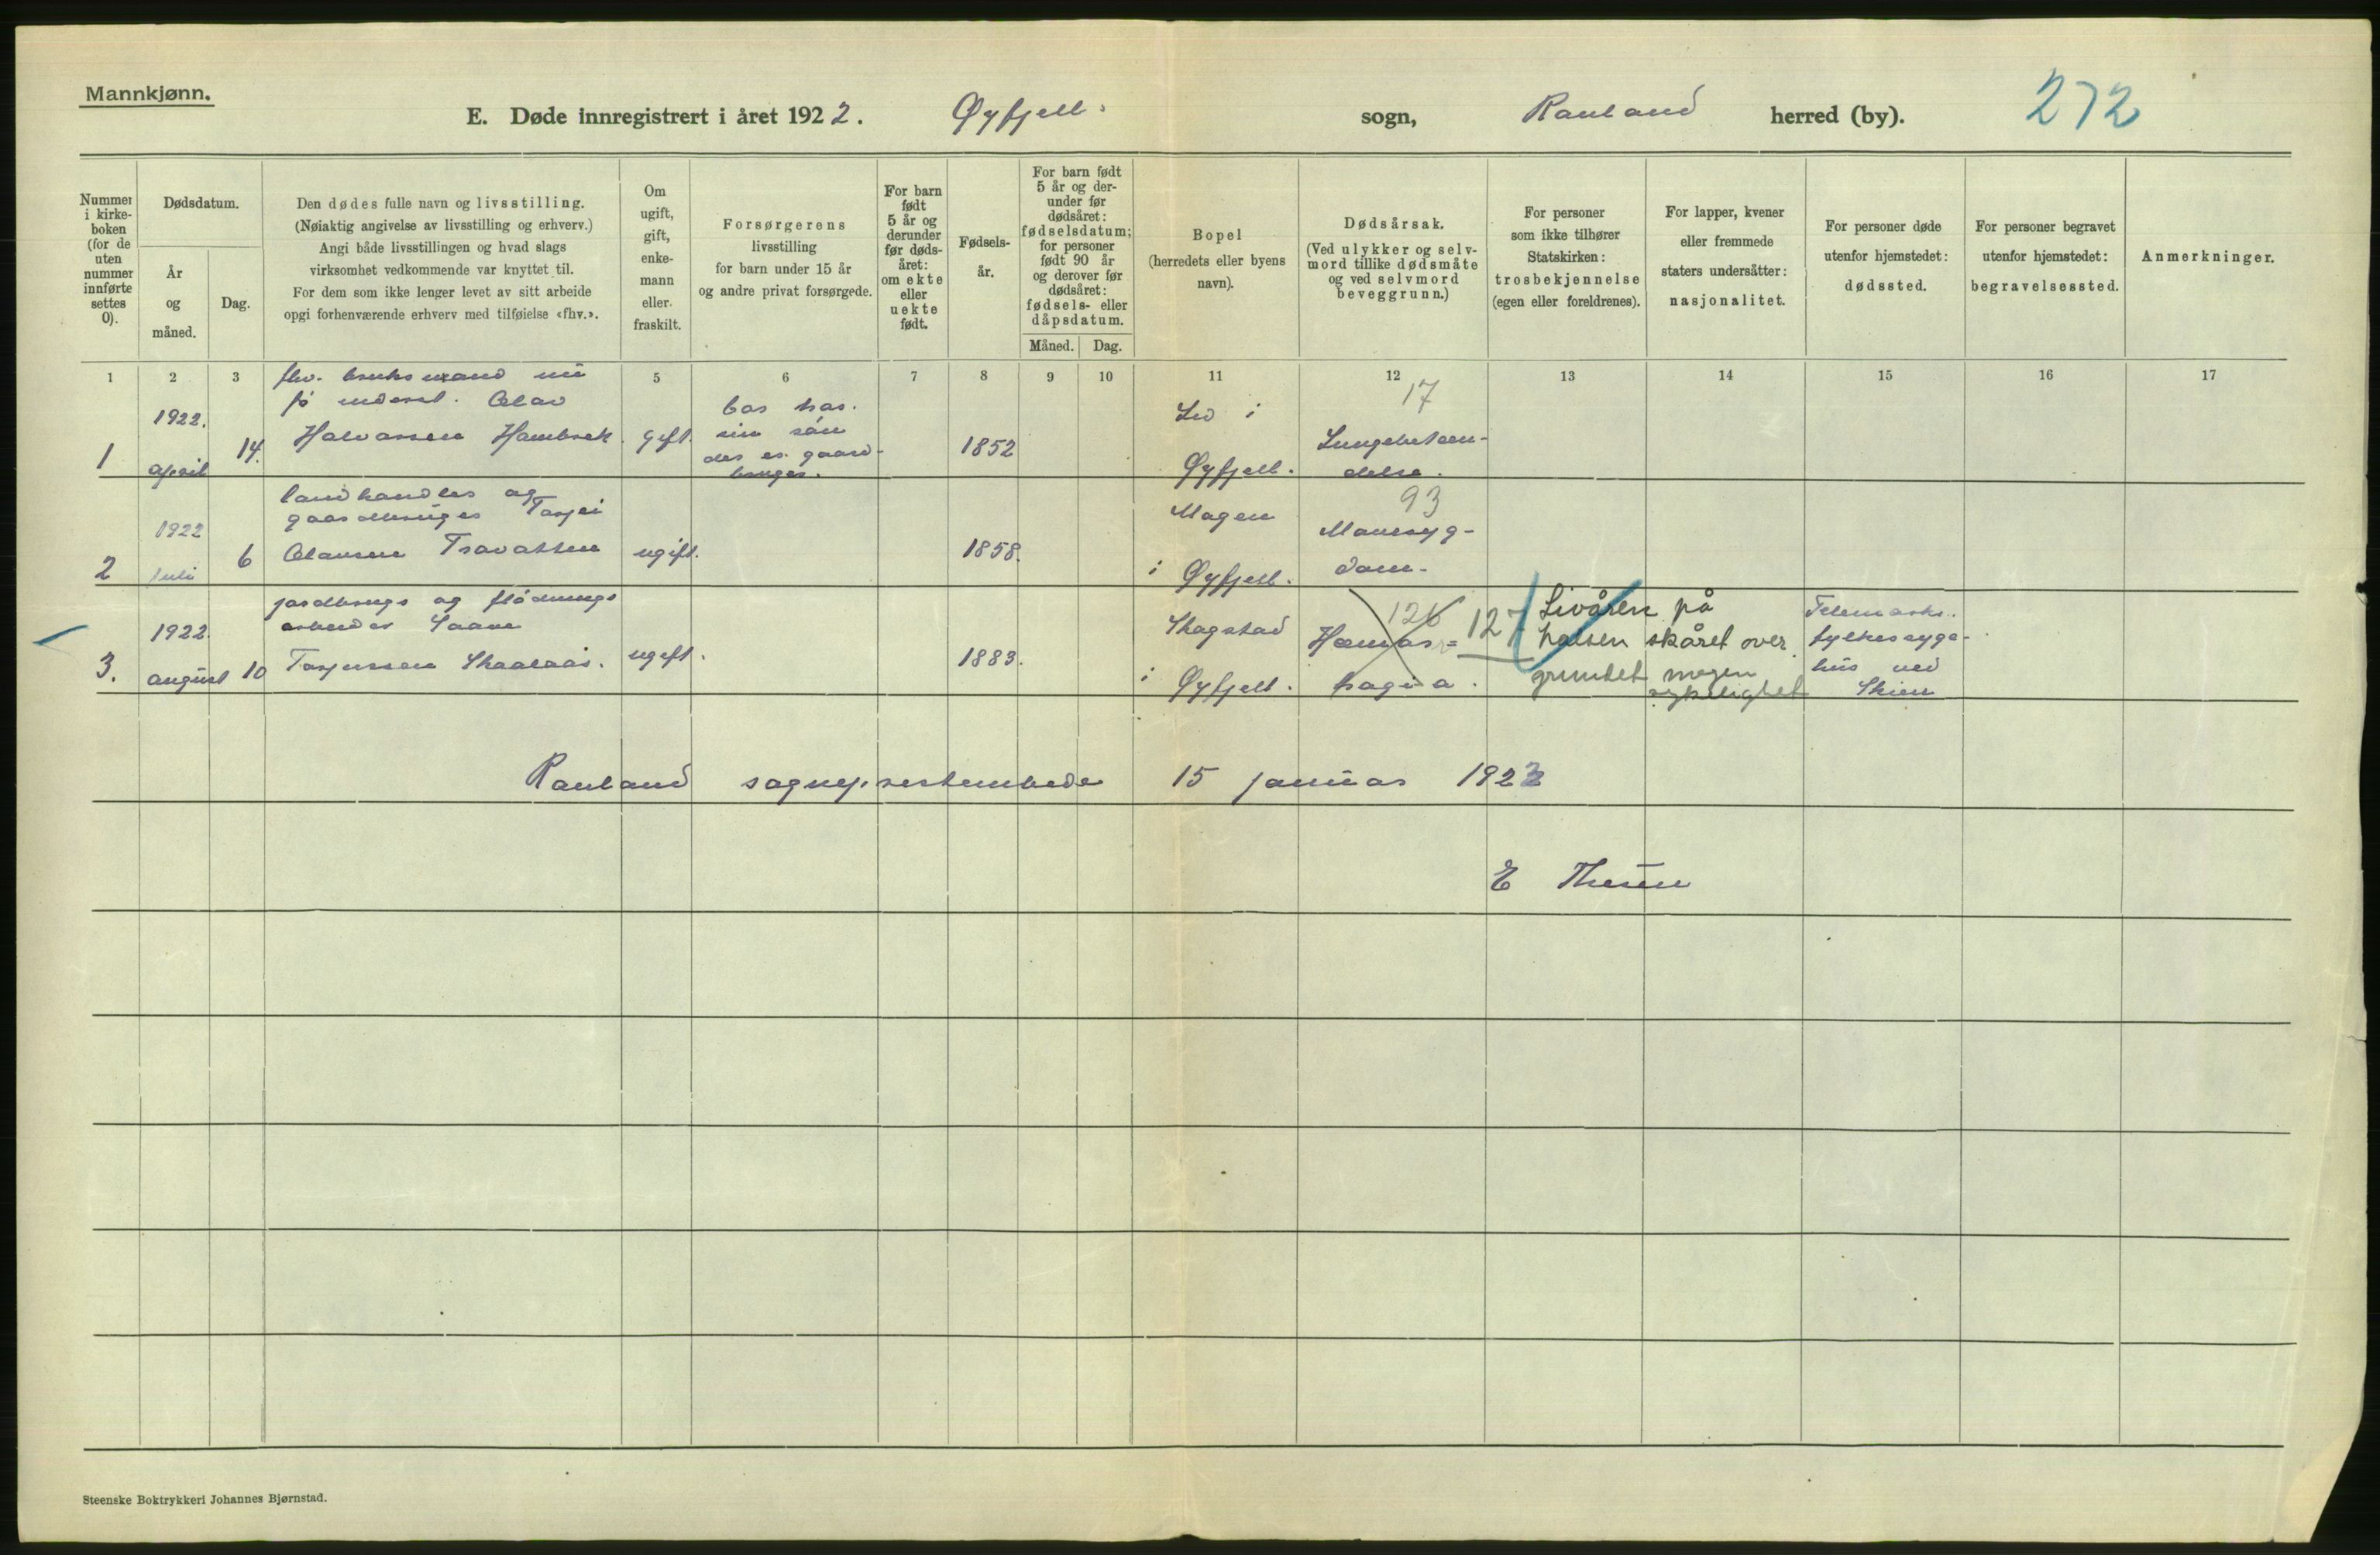 Mannkjønn.
E. Døde innregistrert i året 1922. Øyfjell sogn, Rauland herred (by). 272
Nummer i kirkeboken (for de uten nummer innførte settes 0).
Dødsdatum.
År og måned.
Dag.
Den dødes fulle navn og livsstilling.
(Nøiaktig angivelse av livsstilling og erhverv.)
Angi både livsstillingen og hvad slags
virksomhet vedkommende var knyttet til.
For dem som ikke lenger levet av sitt arbeide
opgi forhenværende erhverv med tilføielse «fhv.».
Om ugift, gift, enkemann eller fraskilt.
Forsørgerens
livsstilling
for barn under 15 år
og andre privat forsørgede.
For barn født 5 år og derunder før dødsåret: om ekte eller uekte født.
Fødselsår.
For barn født 5 år og derunder før dødsåret: fødselsdatum; for personer født 90 år og derover før dødsåret: fødsels- eller dåpsdatum.
Måned. Dag.
Bopel
(herredets eller byens
navn).
Dødsårsak.
(Ved ulykker og selvmord tillike dødsmåte og ved selvmord beveggrunn.)
For personer
som ikke tilhører
Statskirken:
trosbekjennelse
(egen eller foreldrenes).
For lapper, kvener
eller fremmede
staters undersåtter:
nasjonalitet.
For personer døde
utenfor hjemstedet:
dødssted.
For personer begravet
utenfor hjemstedet:
begravelsessted.
Anmerkninger.
1 2 3 5 6 7 8 9 10 11 12 13 14 15 16 17
fhv. bruksmand nu
på underh. Olav
Halvorsen
1 1922. april 14. gift. 1852
hos
sin søn
der er gaard-
bruger.
Lid i
Øyfjell.
17
Lungebetæn-
delse.
landhandler og
gaardbruger Tarjei
Olausen Travatten
2 1922 juli 6 ugift. 1858.
Mogen
i Øyfjell.
93
Mavesyg-
dom.
jordbrugs og flødnings
arbeider Saave
Tarjeissen Skaalaas.
3. 1922. august 10 ugift. 1883.
Skogstad
i Øyfjell.
126
Hæmor-
hagia.
127
Livåren på
halsen skåret over
grundet nogen
sykelighet
Telemarks.
fylkessyge-
hus ved
Skien
Rauland sogneprestembede 15 januar 1923
E Thesen
Steenske Boktrykkeri Johannes Bjørnstad.